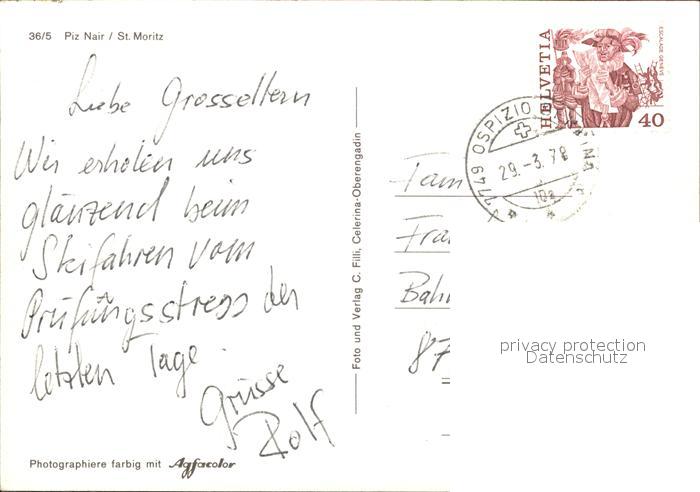 36/5 Piz Nair / St. Moritz
Liebe Grosseltern
Wir erholen uns
glänzend beim
Skifahren vom
Prüfungsstress der
letzten Tage.
Grüsse
Rolf
Photographiere farbig mit Agfacolor
Foto und Verlag C. Filli, Celerina-Oberengadin
HELVETIA
ESCALADE GENÈVE
40
7749 OSPIZIO
29.-3.78
Fam
Bahn
87
privacy protection
Datenschutz